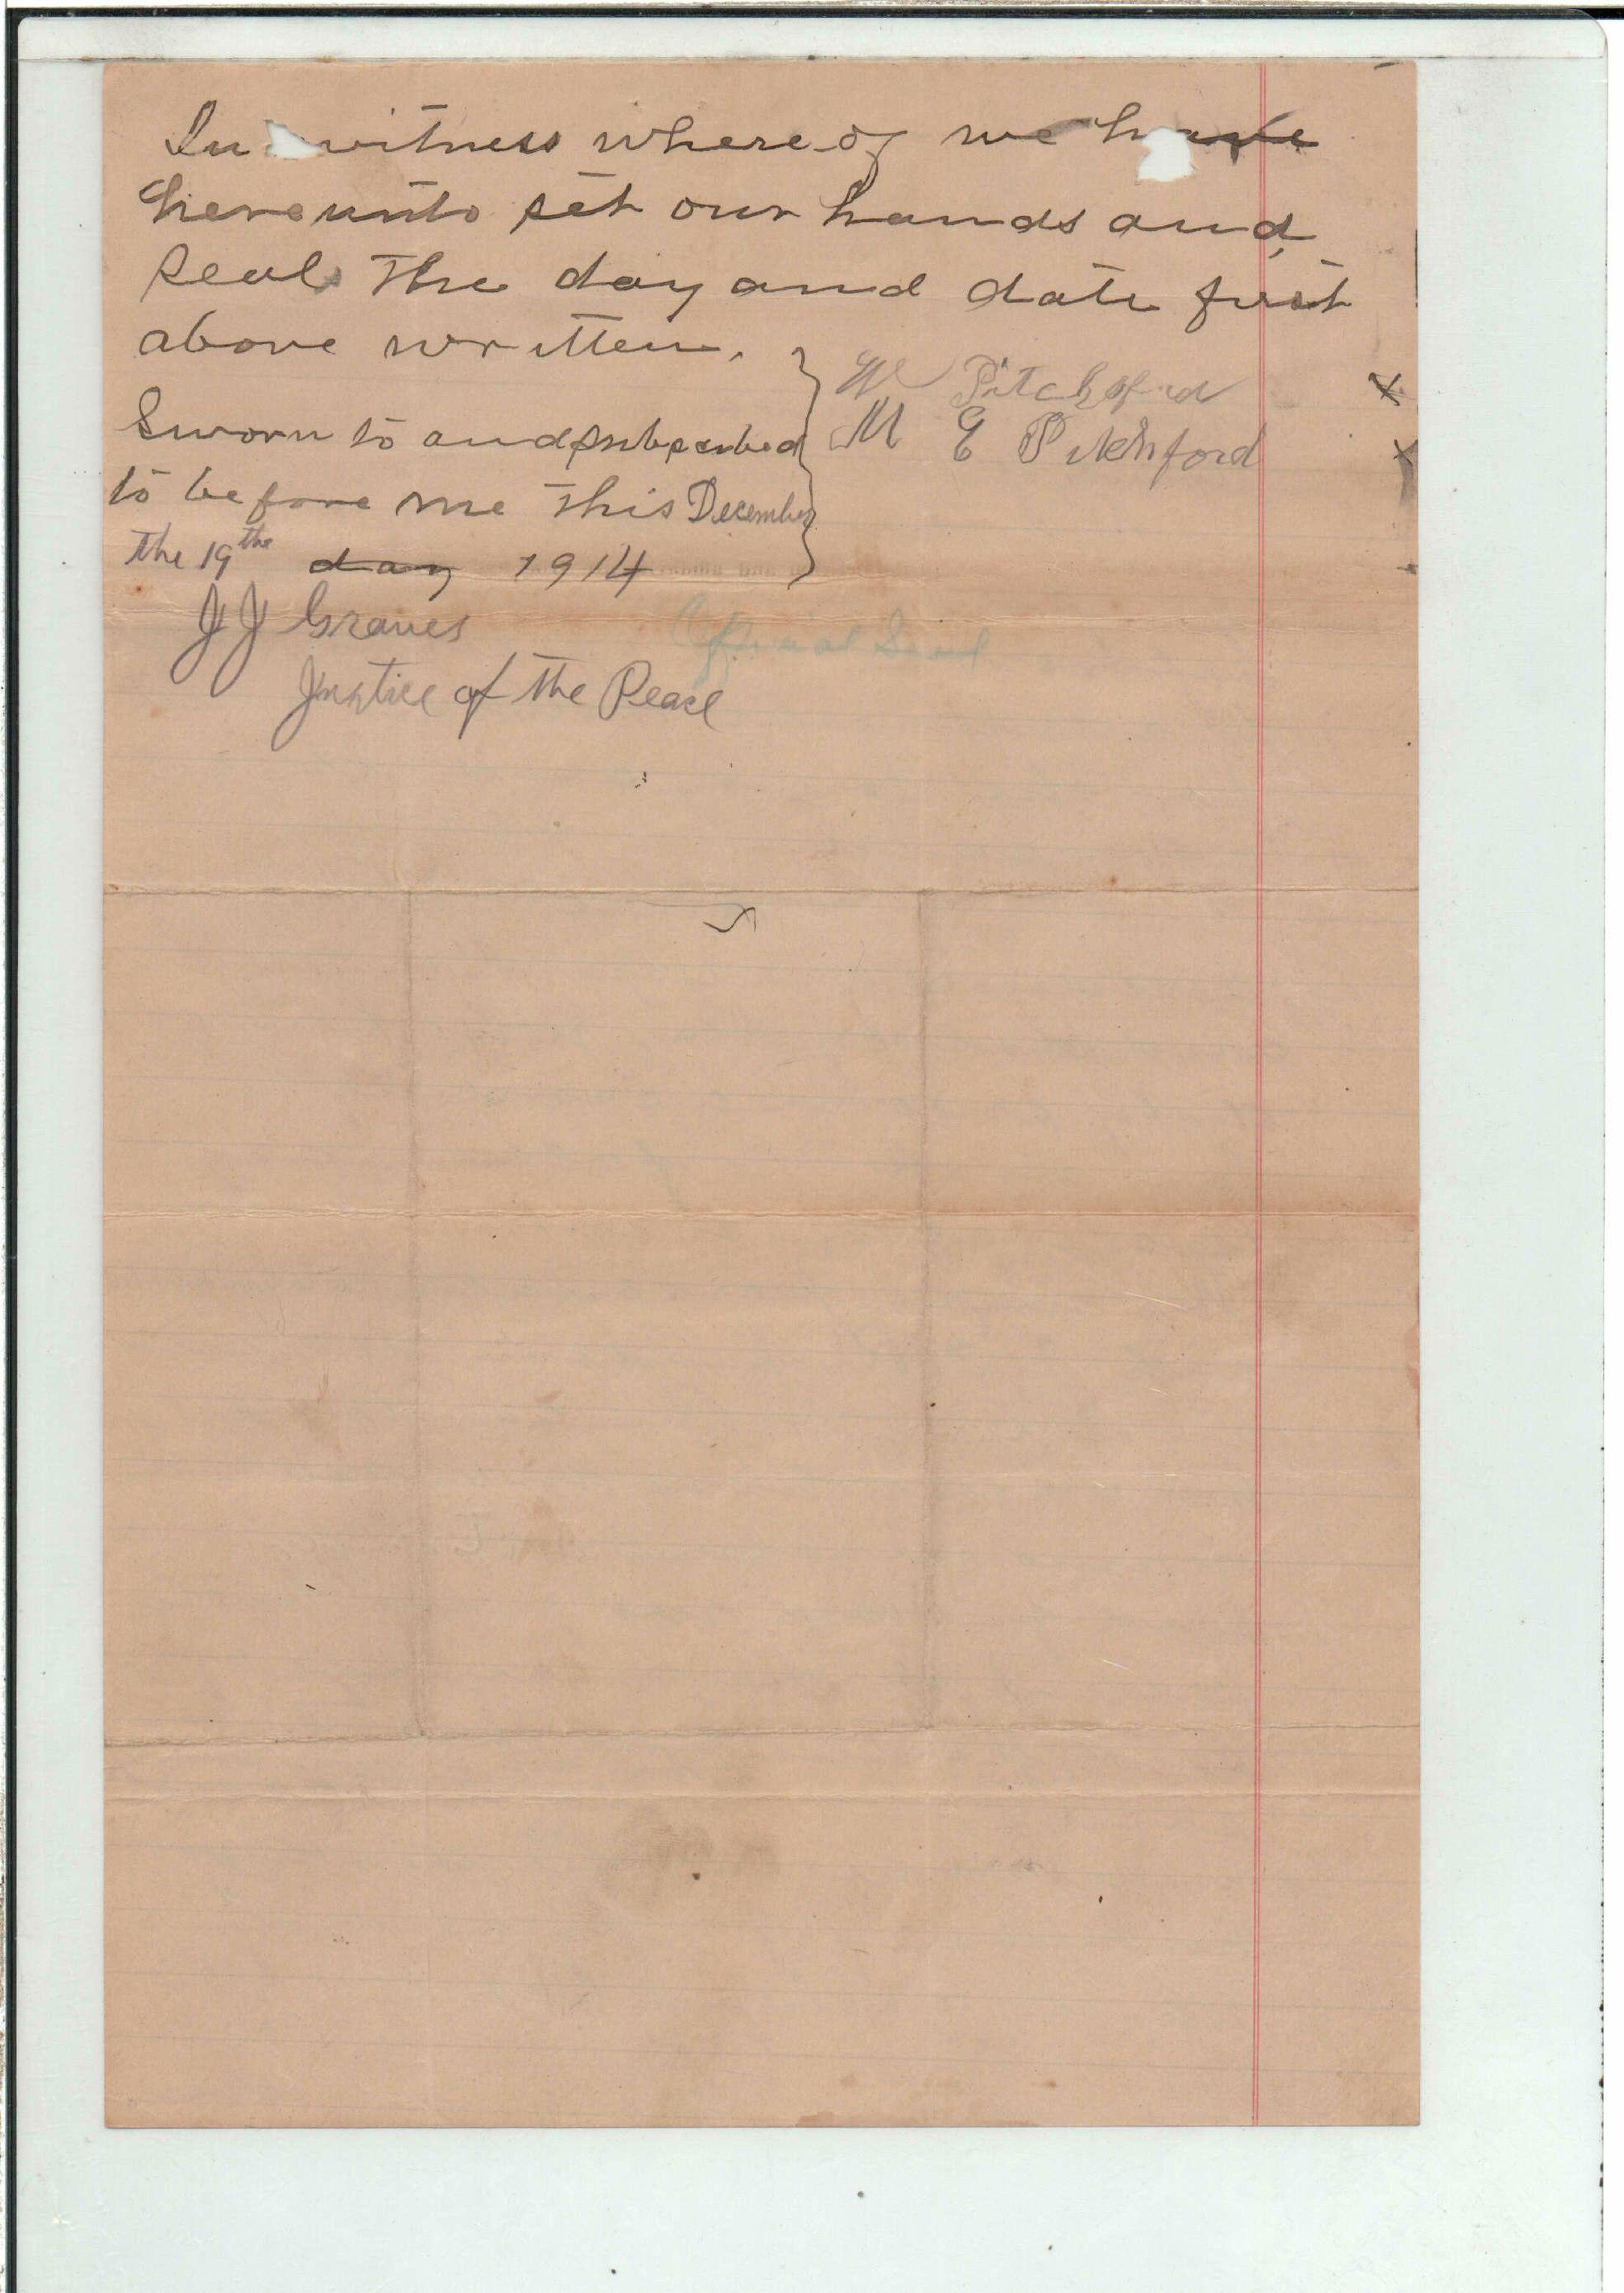 In witness whereof we have
hereunto set our hands and
seals the day and date first
above written.
W Pitchford
M E Pitchford
Sworn to and subscribed
to before me this December
the 19the day 1914
JJ Graves
Official Seal
Justice of the Peace